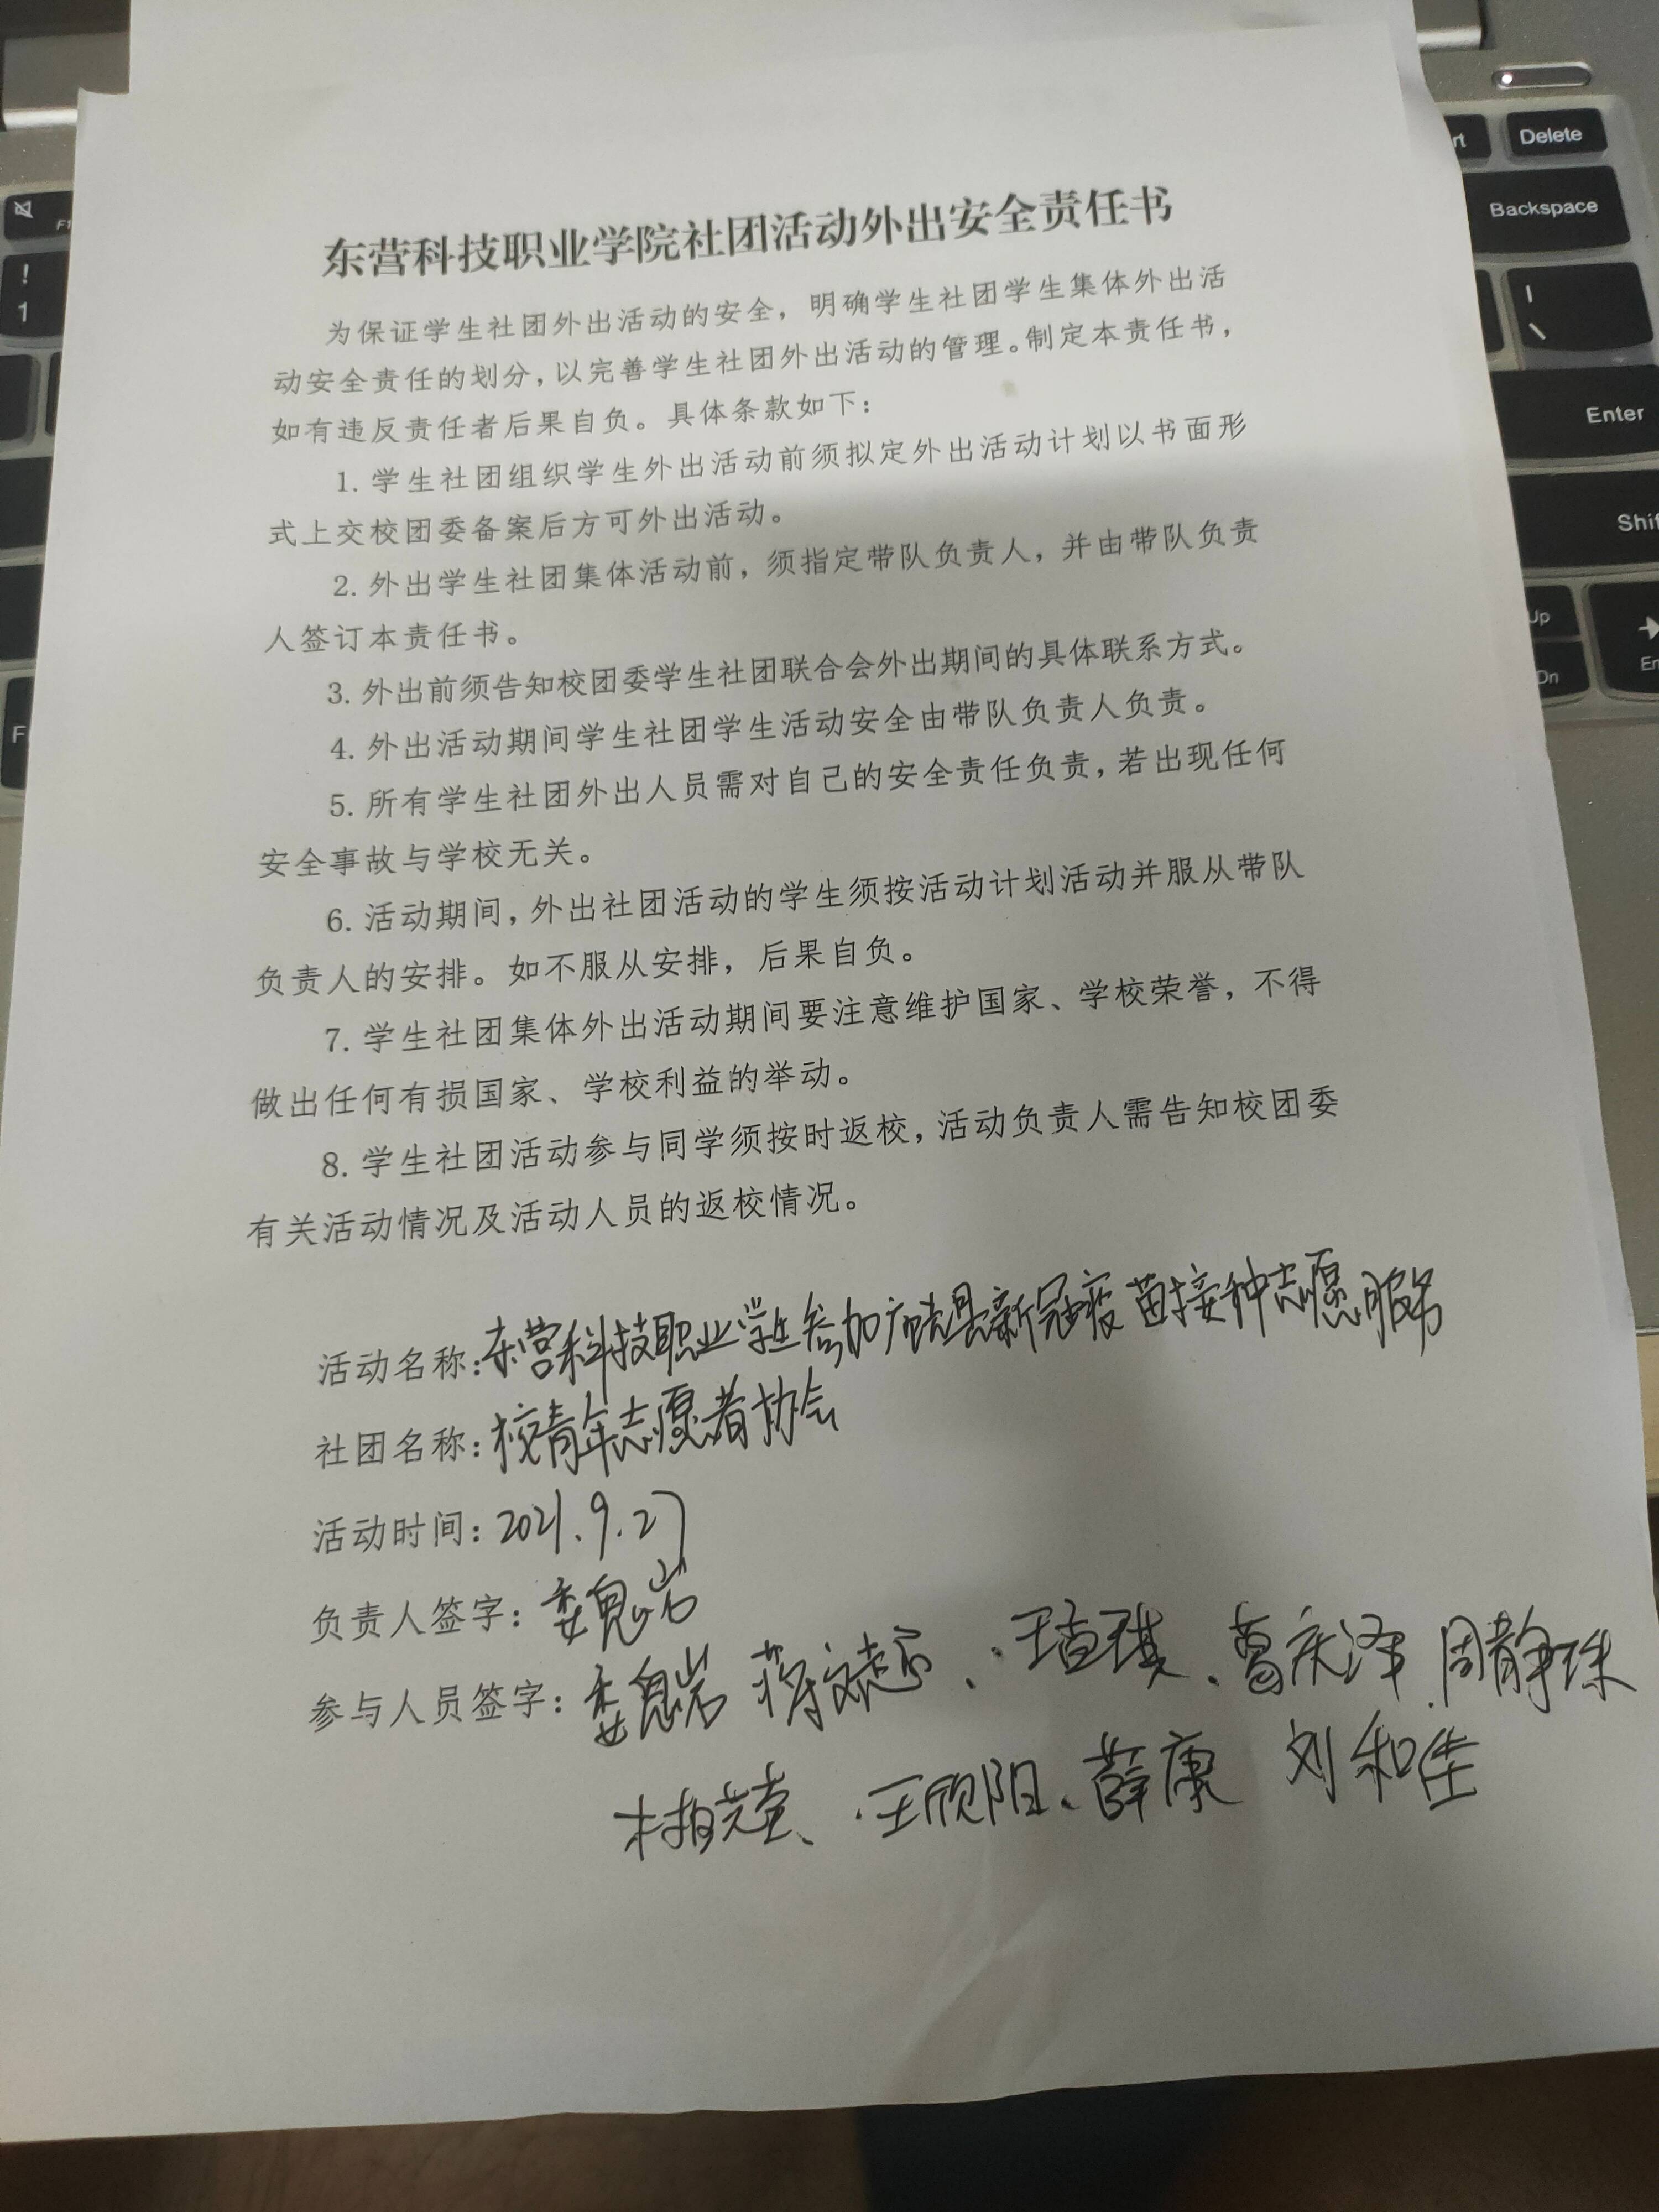 东营科技职业学院社团活动外出安全责任书
为保证学生社团外出活动的安全，明确学生社团学生集体外出活
动安全责任的划分，以完善学生社团外出活动的管理。制定本责任书，
如有违反责任者后果自负。具体条款如下：
1. 学生社团组织学生外出活动前须拟定外出活动计划以书面形
式上交校团委备案后方可外出活动。
2. 外出学生社团集体活动前，须指定带队负责人，并由带队负责
人签订本责任书。
3. 外出前须告知校团委学生社团联合会外出期间的具体联系方式。
4. 外出活动期间学生社团学生活动安全由带队负责人负责。
5. 所有学生社团外出人员需对自己的安全责任负责，若出现任何
安全事故与学校无关。
6. 活动期间，外出社团活动的学生须按活动计划活动并服从带队
负责人的安排。如不服从安排，后果自负。
7. 学生社团集体外出活动期间要注意维护国家、学校荣誉，不得
做出任何有损国家、学校利益的举动。
8. 学生社团活动参与同学须按时返校，活动负责人需告知校团委
有关活动情况及活动人员的返校情况。
活动名称：东营科技职业学生参加广饶县新冠疫苗接种志愿服务
社团名称：校青年志愿者协会
活动时间：2021.9.27
负责人签字：
参与人员签字： 葛庆泽 周静珠
王欣阳、薛康 刘和佳
Delete
Backspace
Enter
Shif
Up
Dn
!
1